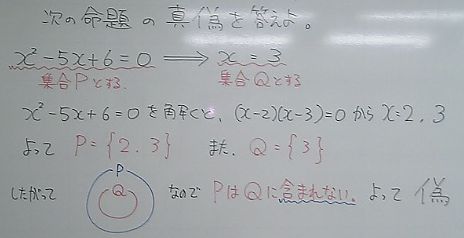 次の命題の真偽を答えよ。
x²-5x+6=0 ⟹ x=3
集合Pとする。 集合Qとする
x²-5x+6=0を解くと、(x-2)(x-3)=0からx=2, 3
よって P={2, 3} また、Q={3}
したがって P Q なので PはQに含まれない。よって 偽